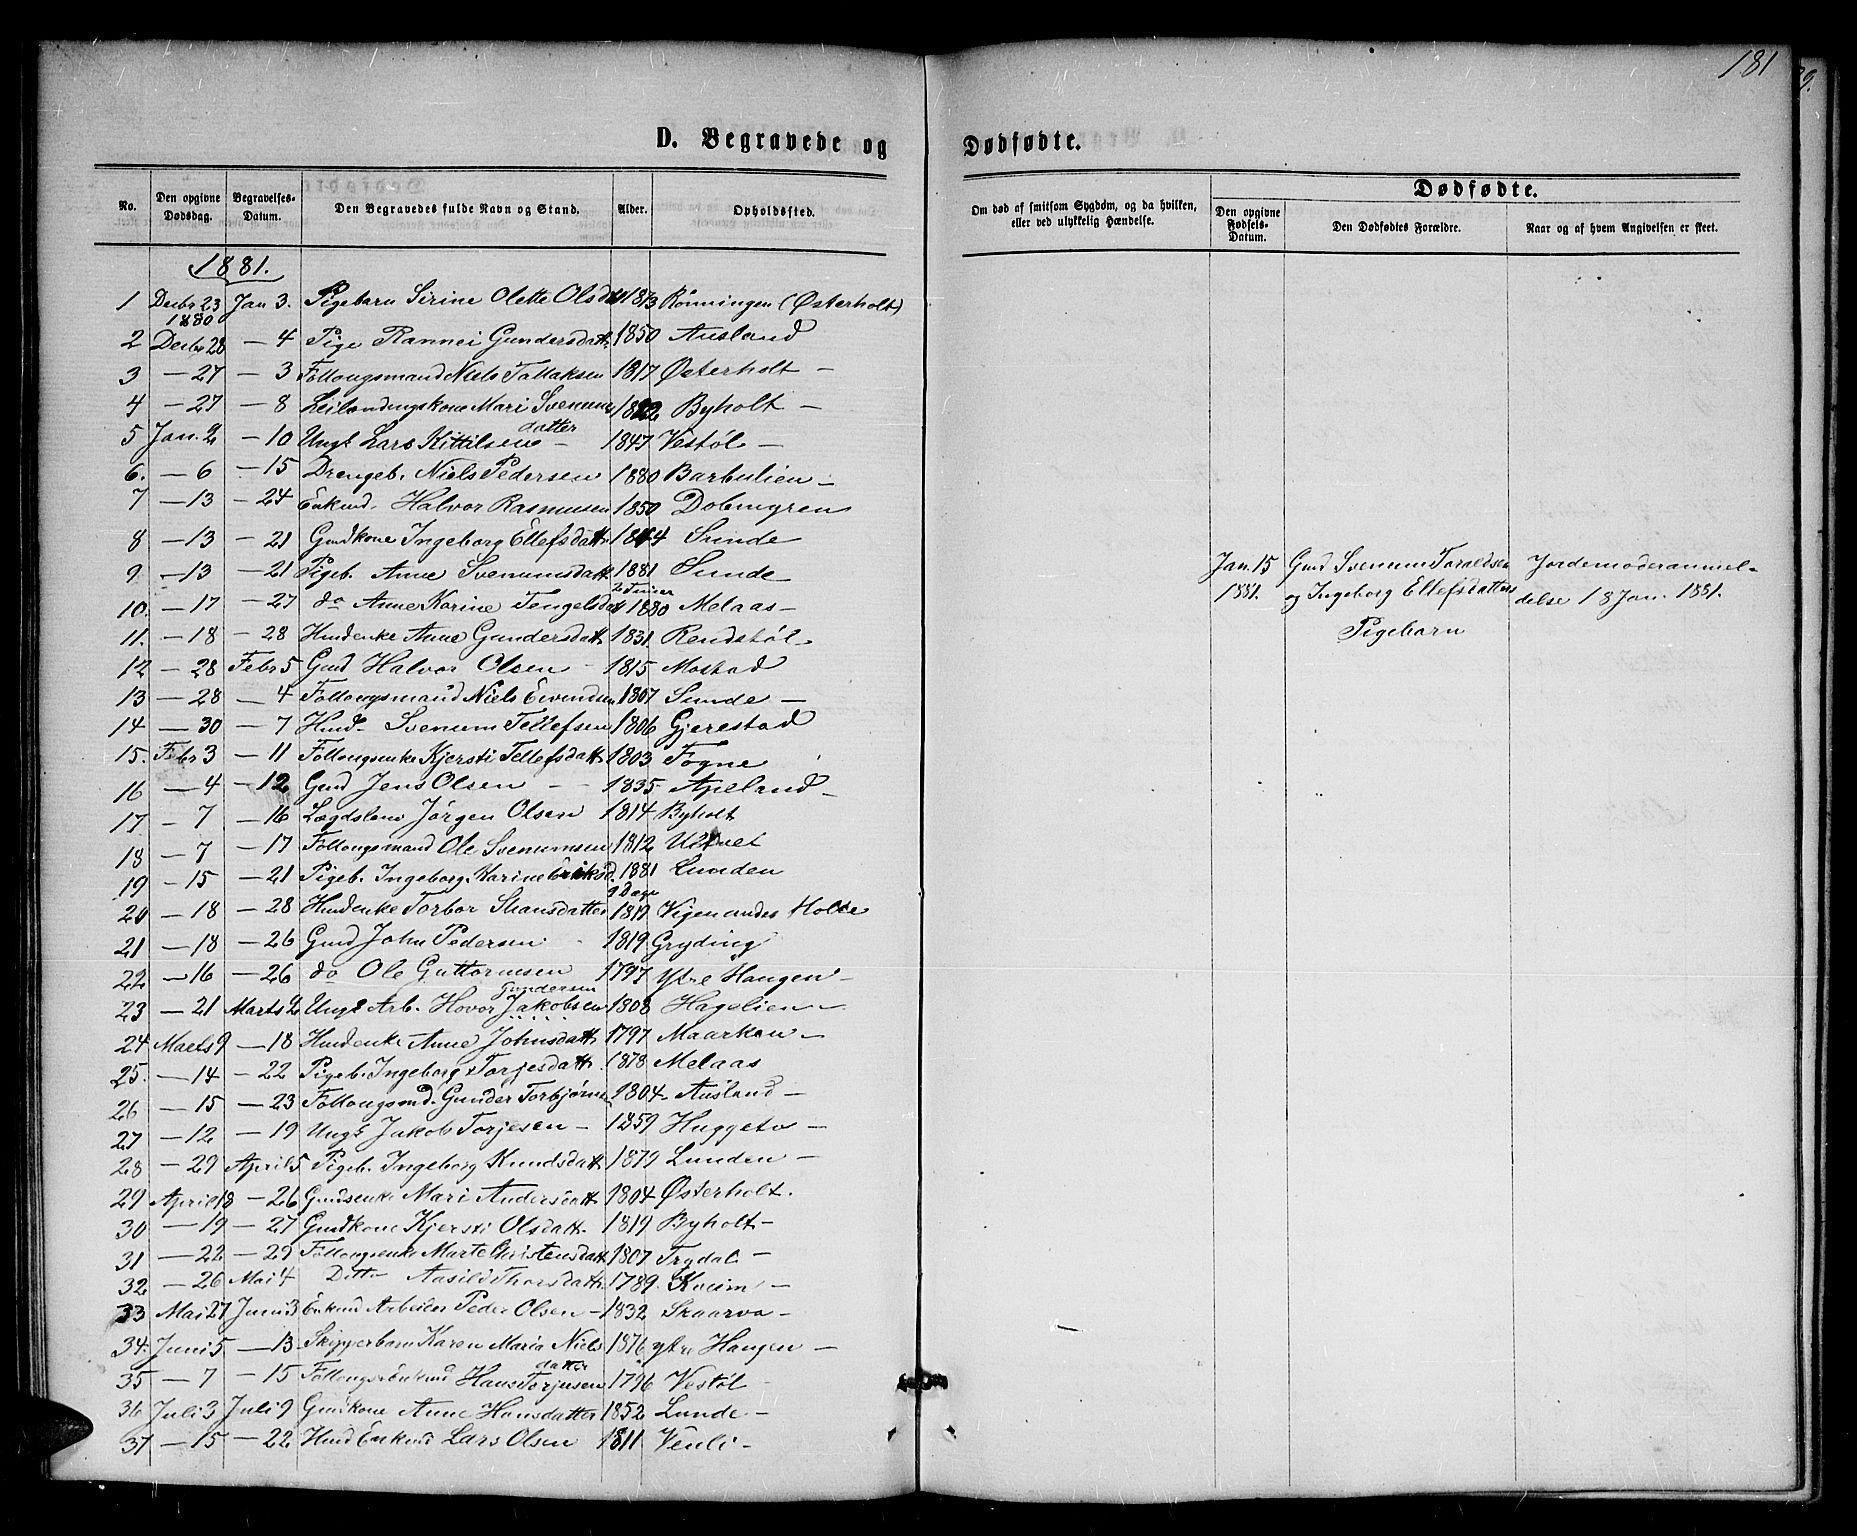 181
D. Begravede og Dødfødte.
No. Den opgivne Dødsdag. Begravelses-Datum. Den Begravedes fulde Navn og Stand. Alder. Opholdssted.
Om død af smitsom Sygdom, og da hvilken, eller ved ulykkelig Hændelse.
Dødfødte.
Den opgivne Fødsels-Datum. Den Dødfødtes Forældre. Naar og af hvem Angivelsen er skeet.
1881.
1 Decbr 23 1880 Jan 3. Pigebarn Sirine Olette Olsdatt 1873 Rønningen (Østerholt)
2 Decbr 28 — 4 Pige Rannei Gundersdatt. 1850 Ausland
3 — 27 — 3 Føllougsmand Niels Tallaksen 1817 Østerholt —
4 — 27 — 8 Leilændingskone Mari Svenums datter 1822 Byholt —
5 Jan. 2 — 10 Ungk Lars Kittilsen — 1847 Vestøl —
6. — 6 — 15 Drengeb. Niels Pedersen 1880 Barbulien —
7 — 13 — 24 Enkmd. Halvor Rasmusen 1850 Dobmyren
8 — 13 — 21 Gmdkone Ingeborg Ellefsdatt 1844 Sunde
9. — 13 — 21 Pigeb. Anne Svenumsdatt 1881 2 Timer Sunde —
10. — 17 — 27 do Anne Karine Tengelsdatt 1880 Melaas —
11. — 18 — 28 Husenke Anne Gundersdatt 1831 Rendstøl
12 — 28 Febr 5 Gmd Halvor Olsen — 1815 Mostad
13 — 28 — 4 Føllougsmand Niels Eivendsen 1807 Sunde —
14 — 30 — 7 Husmd. Svenum Tellefsen 1806 Gjerestad
15. Febr 3 — 11 Føllougsenke Kjersti Tellefsdatt 1803 Fogne
16 — 4 — 12 Gmd Jens Olsen — — 1835 Apeland —
17 — 7 — 16 Lægdslem Jørgen Olsen 1814 Byholt
18 — 7 — 17 Føllougsmand Ole Svenumsen 1812
19 — 15 — 21 Pigeb. Ingeborg Karine Eriksd. 1881 9 Dage Lunden
20 — 18 — 28 Husenke Torbor 1819 Vigen andes Holte
21 — 18 — 26 Gmd John Pedersen 1819 Gryding
22 — 16 — 26 do Ole Guttormsen 1797 Ytre Haugen —
23 — 21 Marts 2 Ungk. Arb. Hovor Jakobsen Gundersen 1808 Hagelien —
24 Marts 9 — 18 Husenke Anne Johnsdatt 1797 Maarken —
25. — 14 — 22 Pigeb. Ingeborg Torjesdatt. 1878 Melaas
26 — 15 — 23 Føllougsmd. Gunder Torbjørns 1804 Ausland —
27 — 12 — 19 Ungk Jakob Torjesen — 1859 Huggeto —
28 — 29 April 5 Pigeb. Ingeborg Knudsdatt 1879 Lunden —
29 April 18 — 26 Gmdsenke Mari Andersdatt. 1804 Østerholt.
30 — 19 — 27 Gmdkone Kjersti Olsdatt. 1819 Byholt —
31 — 22 — 29 Føllougsenke Marte Christensdatt 1807 Trydal —
32 — 26 Mai 4 Ditto Aasild Thorsdatt 1789. Kveim —
33 Mai 27 Juni 3 Enkmd Arbeider Peder Olsen — 1832 Skaarvo —
34. Juni 5 — 13 Skipperbarn Karen Maria Niels datter 1876 ytre Haugen —
35 — 7 — 15 Føllougsenkmd Hans Torjusen 1796 Vestøl
36 Juli 3 Juli 9 Gmdkone Anne Hansdatter 1852 Lunde —
37 — 15 — 22 Husmd Enkmd Lars Olsen 1811 Veuli —
Jan. 15 1881. Gmd Svenum Taraldsen og Ingeborg Ellefsdatters Pigebarn
Jordemoderanmeldelse 18 Jan. 1881.